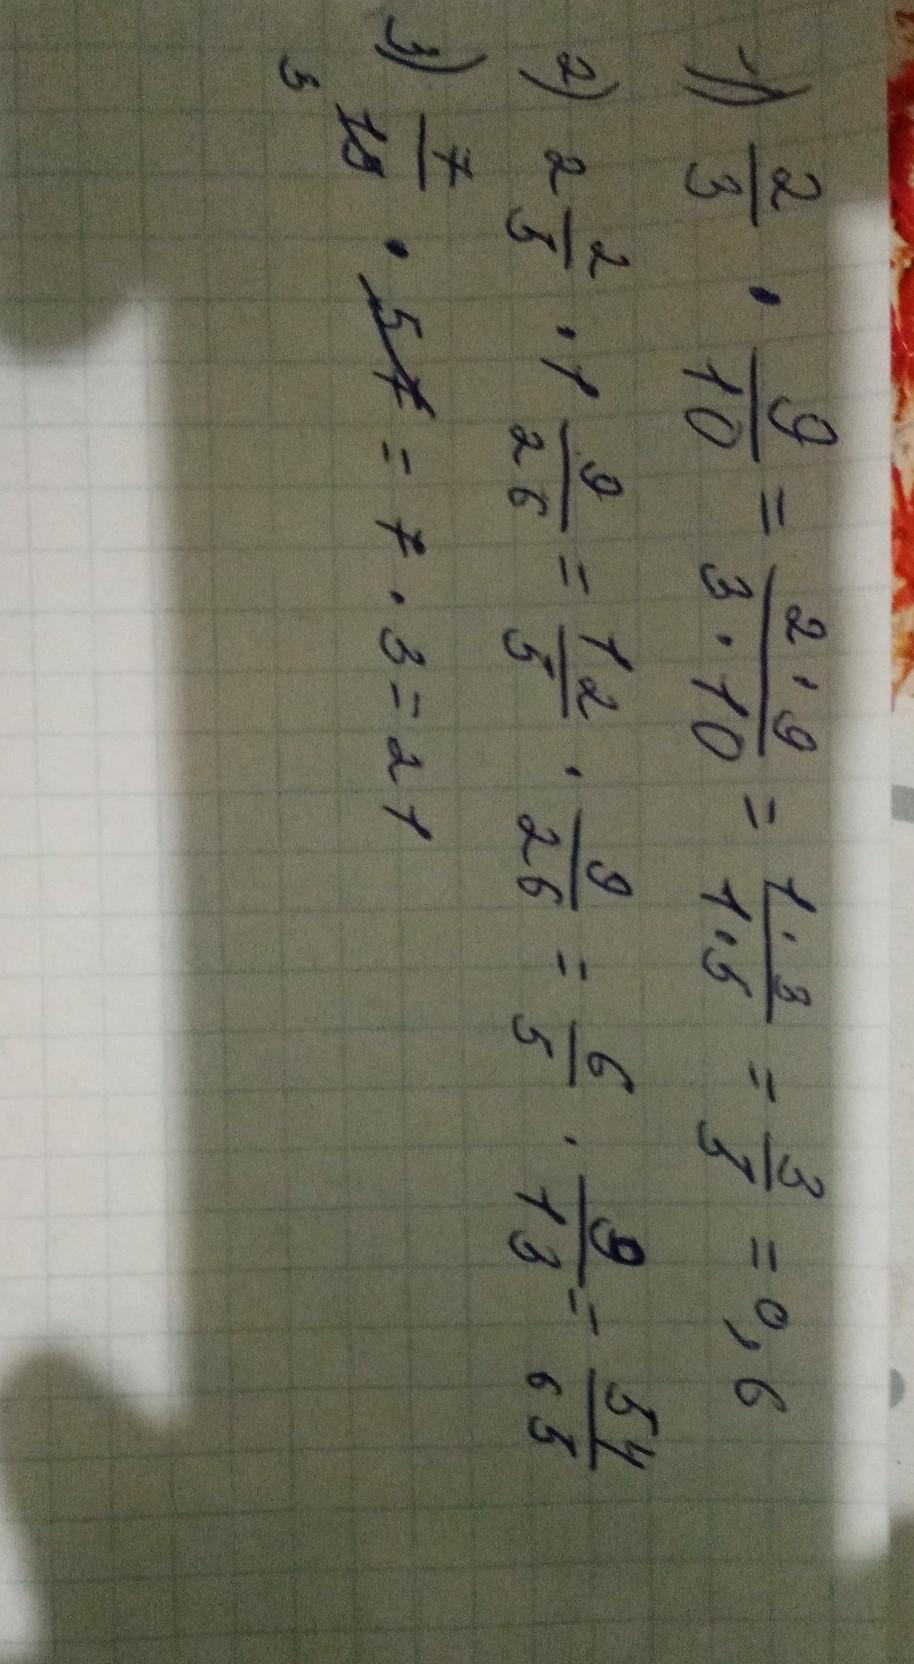 1) 2/3 · 9/10 = 2·9/3·10 = 1·3/1·5 = 3/5 = 0,6
2) 2 2/5 · 1 9/26 = 12/5 · 9/26 = 6/5 · 9/13 = 54/65
3) 7/18 · 54 = 7 · 3 = 21
3